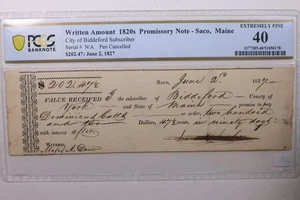 PCGS
BANKNOTE
Written Amount 1820s Promissory Note - Saco, Maine
City of Biddeford Subscriber
Serial # N/A Pen Cancelled
$202.47; June 2, 1827
EXTREMELY FINE
40
$202.47
Saco, June 2 1827
VALUE RECEIVED I the subscriber of Biddeford County of
York and State of Maine promise to pay
or order, two hundred
and two Dollars, 47 Cents, in ninety days
with interest after